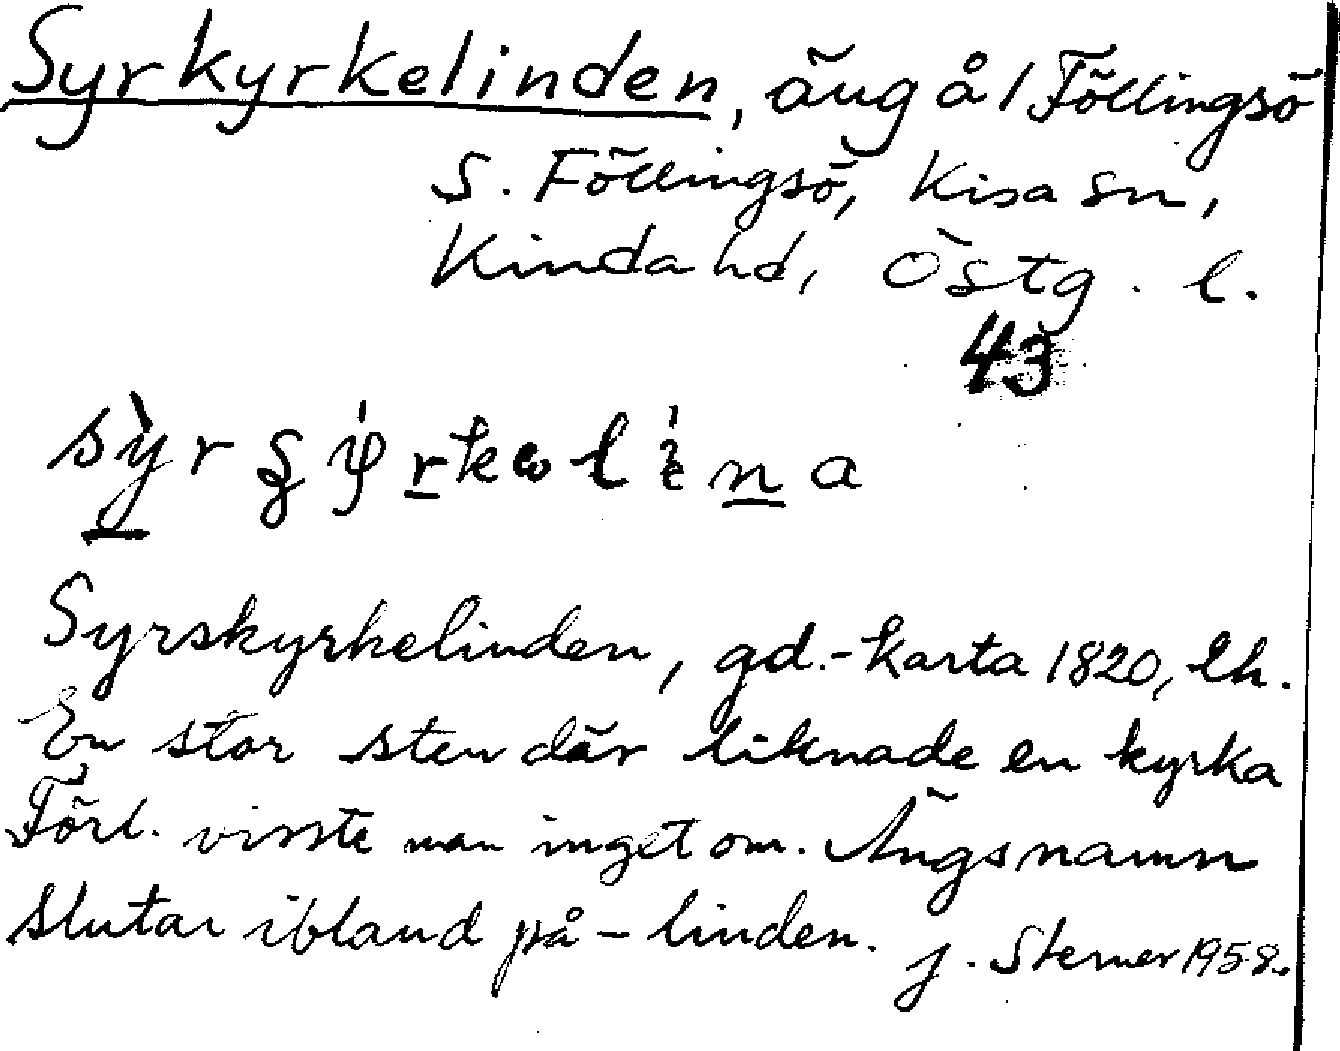 Syrkyrkelinden, äng å/Föllingsö
S. Föllingsö, Kisa sn,
Kinda hd, Östg. l.
43
Syrskyrkelinden, gd.-karta 1820, lh.
En stor sten där liknade en kyrka
Förl. visste man inget om. Ängsnamn
slutar ibland på -linden. J. Sterner 1958.